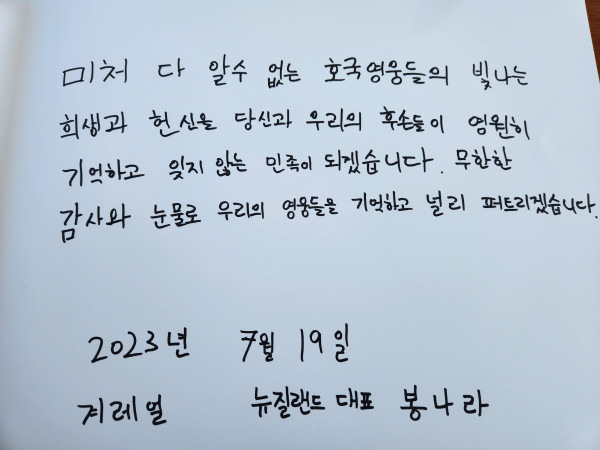 미처 다 알수 없는 호국영웅들의 빛나는
희생과 헌신을 당신과 우리의 후손들이 영원히
기억하고 잊지 않는 민족이 되겠습니다. 무한한
감사와 눈물로 우리의 영웅들을 기억하고 널리 퍼트리겠습니다.
2023년 7월 19일
계레얼 뉴질랜드 대표 봉나라